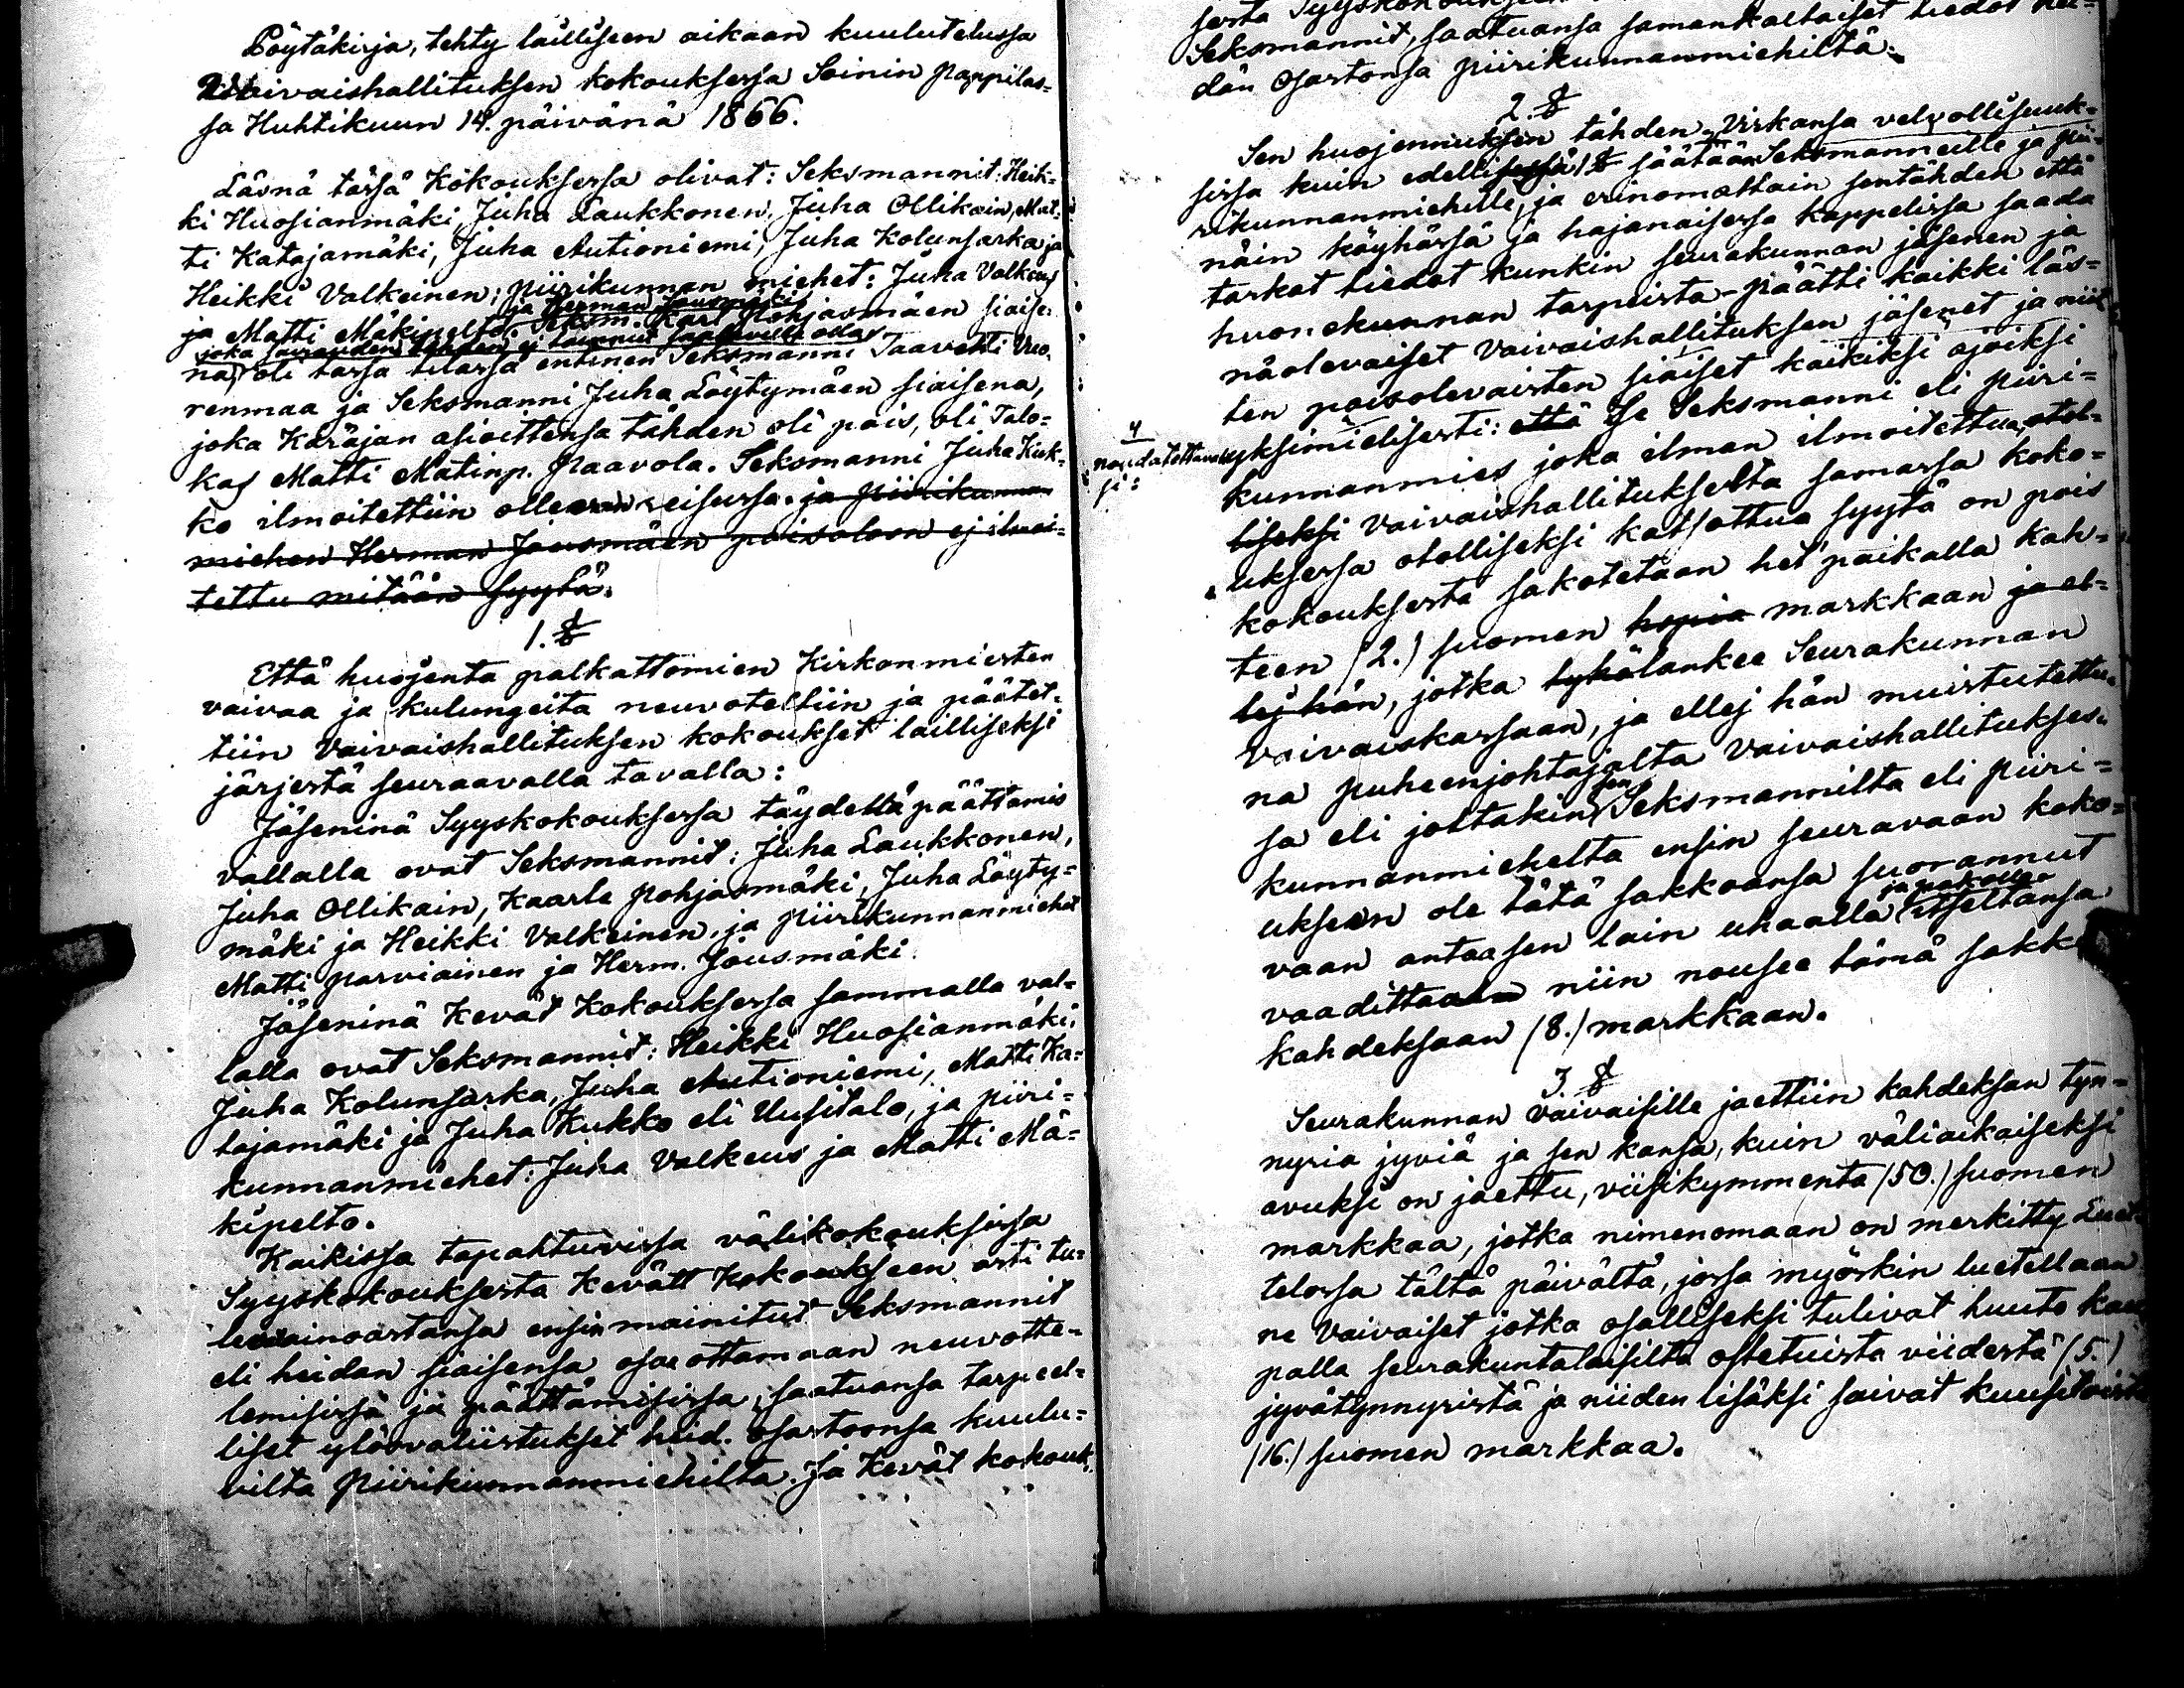 Pöytäkirja, tehty lailliseen aikaan kuulutelussa
Waivaishallituksen kokouksessa Soinin pappilas=
sa Huhtikuun 14. päivänä 1866.
Läsnä tässä Kokouksessa olivat: Seksmannit: Heik=
ki Huosianmäki, Juha Laukkonen, Juha Ollikain, Mat=
ti Katajamäki, Juha Autioniemi, Juha Kolunsarka ja
Heikki Valkeinen; piirikunnan miehet: Juha Valkeus
ja Herman Jousmäki
ja Matti Mäkipelto. Seksm. Karl Pohjasmäen siaise=
joka sairauden tähden ej tainnut saapuvilla olla,
na, oli tässä tilassa entinen Seksmanni Taavetti Vuo=
renmaa ja Seksmanni Juha Löytymäen siaisena,
joka Käräjan asioittensa tähden oli pois, oli Talo=
kas Matti Matinp. Paavola. Seksmanni Juha Kuk=
ko ilmoitettiin olleen reisussa. ja piirikunnan
miehen Herman Jousmäen poisoloon ej ilmoi=
tettu mitään syytä.
1. §
Että huojenta palkattomien Kirkonmiesten
vaivaa ja kulungeita neuvoteltiin ja päätet=
tiin Vaivaishallituksen kokoukset lailliseksi
järjestä seuraavalla tavalla:
Jäseninä Syyskokouksessa täydellä päättämis
vallalla ovat Seksmannit: Juha Laukkonen,
Juha Ollikain, Kaarle Pohjasmäki, Juha Löyty=
mäki ja Heikki Valkeinen, ja piirikunnanmiehet
Matti Parviainen ja Herm. Jousmäki.
Jäseninä Kevät Kokouksessa sammalla val=
lalla ovat Seksmannit: Heikki Huosianmäki,
Juha Kolunsarka, Juha Autioniemi, Matti Ka=
tajamäki ja Juha Kukko eli Uusitalo, ja piiri=
kunnanmiehet: Juha Valkeus ja Matti Mä=
kipelto.
Kaikissa tapahtuvissa välikokouksissa
Syyskokouksesta Kevätt Kokoukseen asti tu=
levat ainoastansa ensin mainitut Seksmannit
eli heidan siaisensa osaa ottamaan neuvotte=
lemisissa ja päättämisissa, saatuansa tarpeel=
liset ylösvaliistukset heid. osastoonsa kuulu=
vilta piirikunnanmiehilta. Ja Kevät kokouk=
sesta Syyskokoukseen
Seksmannit, saatuansa samankaltaiset tiedot hei=
dän Osastonsa piirikunnanmiehiltä.
2. §
Sen huojennuksen tähden Virkansa velvollisuuk=
sissa kuin edellisessä 1 § säätään Seksmanneille ja pii=
rikunnanmiehille, ja erinomattain sentähden että
näin köyhässä ja hajanaisessa kappelissa saada
tarkat tiedot kunkin seurakunnan jäsenen ja
huonekunnan tarpeista - päätti kaikki läs=
näolevaiset Vaivaishallituksen jäsenet ja niit=
ten poisolevaisten siaiset kaikiksi ajoiksi
noudatettavak
si:
yksimielisesti: että Se Seksmanni eli piiri=
kunnanmies joka ilman ilmoitettua, otol=
liseksi Vaivaishallitukselta samassa koko=
uksessa otolliseksi katsottua syytä on pois
kokouksesta sakotetaan het paikalla kah=
teen (2.) suomen hopia markkaan ja el=
lej hän, jotka tykölankee Seurakunnan
vaivaiskassaan, ja ellej hän muistutettu=
na puheenjohtajalta Vaivaishallitukses=
sa eli joltakin sen Seksmannilta eli piiri=
kunnanmiehelta ensin seuravaan koko=
ukseen ole tätä sakkoansa suorannut
ja pakolla
vaan antaa sen lain uhaalla itseltänsä
vaadittaa niin nousee tämä sakko
kahdeksaan (8.) markkaan.
3. §
Seurakunnan Vaivaisille jaettiin kahdeksan tyn=
nyria jyviä ja sen kansa, kuin väliaikaiseksi
avuksi on jaettu, viisikymmenta (50.) suomen
markkaa, jotka nimenomaan on merkitty Luet=
telossa tältä päivältä, jossa myöskin luetellaan
ne Vaivaiset jotka osalliseksi tulivat huuto kau
palla seurakuntalaisilta ostetuista viidestä (5.)
jyvätynnyristä ja niiden lisäksi saivat kuusitoista
(16.) suomen markkaa.